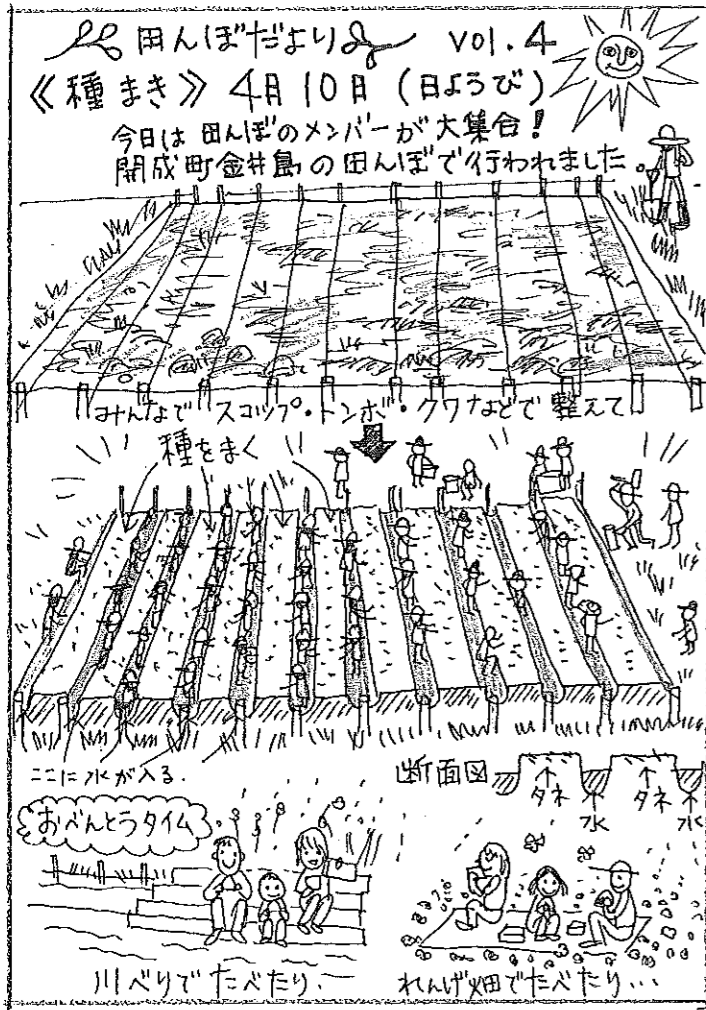 田んぼだより vol.4
《種まき》4月10日(日ようび)
今日は田んぼのメンバーが大集合！
開成町金井島の田んぼで行われました。
みんなでスコップ・トンボ・クワなどで整えて
種をまく
ここに水が入る.
断面図
タネ
水
タネ
水
おべんとうタイム
川べりでたべたり..
れんげ畑でたべたり...